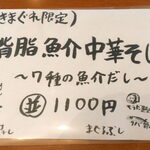 きまぐれ限定)
背脂魚介中華そ
〜7種の魚介だし〜
並 1100円